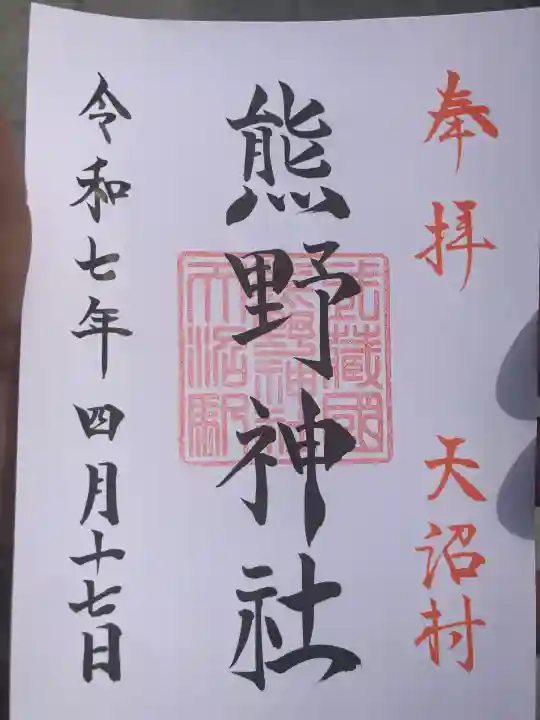 奉拝
天沼村
熊野神社
武蔵國
熊野神社
天沼駅
令和七年四月十七日